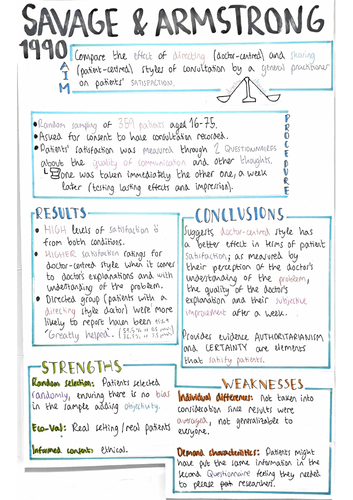 SAVAGE & ARMSTRONG
1990
AIM
Compare the effect of directing (doctor-centred) and sharing
(patient-centred) styles of consultation by a general practitioner
on patients' SATISFACTION.
PROCEDURE
• Random sampling of 359 patients aged 16-75.
• Asked for consent to have consultation recorded.
• Patients' satisfaction was measured through 2 QUESTIONNAIRES
about the quality of communication and other thoughts.
one was taken immediately the other one, a week
later (testing lasting effects and impression).
RESULTS
• HIGH levels of satisfaction
from both conditions.
• HIGHER satisfaction ratings for
doctor-centred style when it comes
to doctor's explanations and with
understanding of the problem.
• Directed group (patients with a
directing style doctor) were more
likely to report have been
"Greatly helped".
CONCLUSIONS
Suggests doctor-centred style has
a better effect in terms of patient
satisfaction; as measured by
their perception of the doctor's
understanding of the problem;
the quality of the doctor's
explanation and their subjective
improvement after a week.
Provides evidence AUTHORITARIANISM
and CERTAINTY are elements
that satisfy patients.
STRENGTHS
Random selection: Patients selected
randomly, ensuring there is no bias
in the sample adding objectivity.
Eco-Val: Real setting/real patients
Informed consent: ethical.
WEAKNESSES
Individual differences: not taken into
consideration since results were
averaged, not generalizable to
everyone.
Demand characteristics: Patients might
have put the same information in the
second Questionnaire feeling they needed
to please researchers.